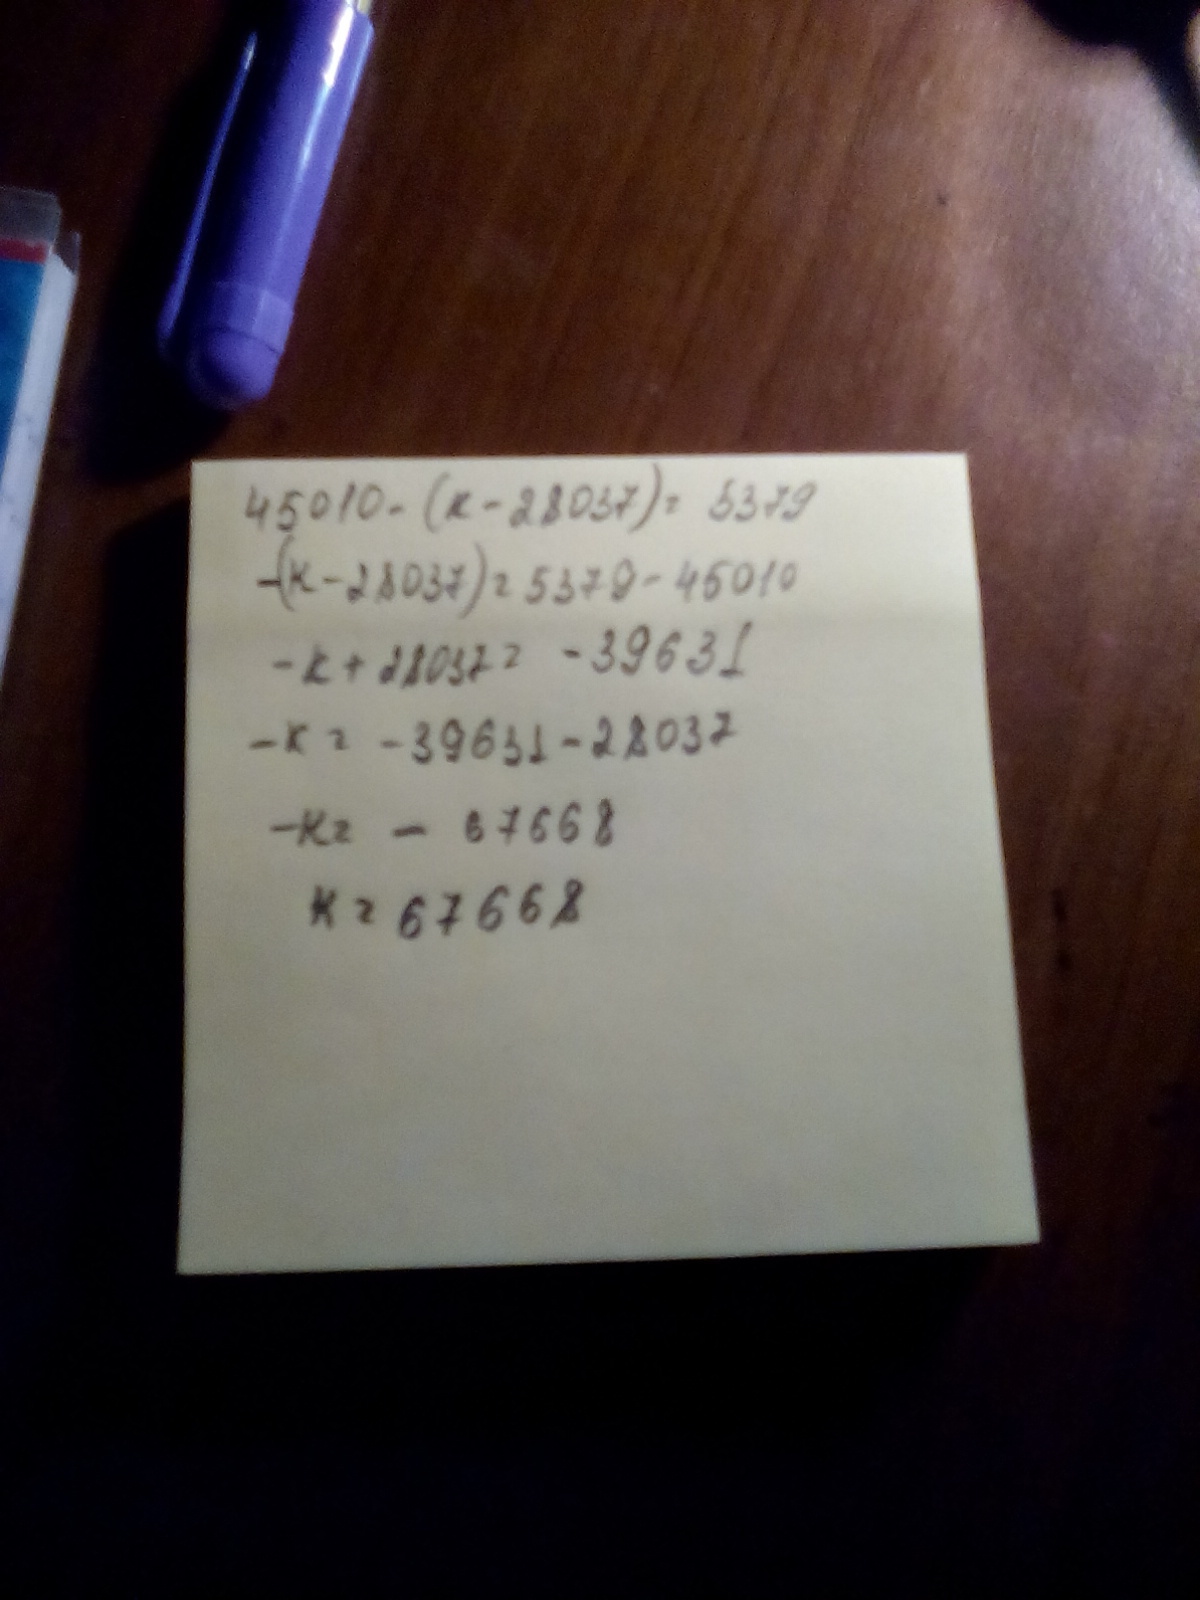 45010-(к-28037)=5379
-(к-28037)=5379-45010
-к+28037= -39631
-к= -39631-28037
-к= - 67668
к=67668